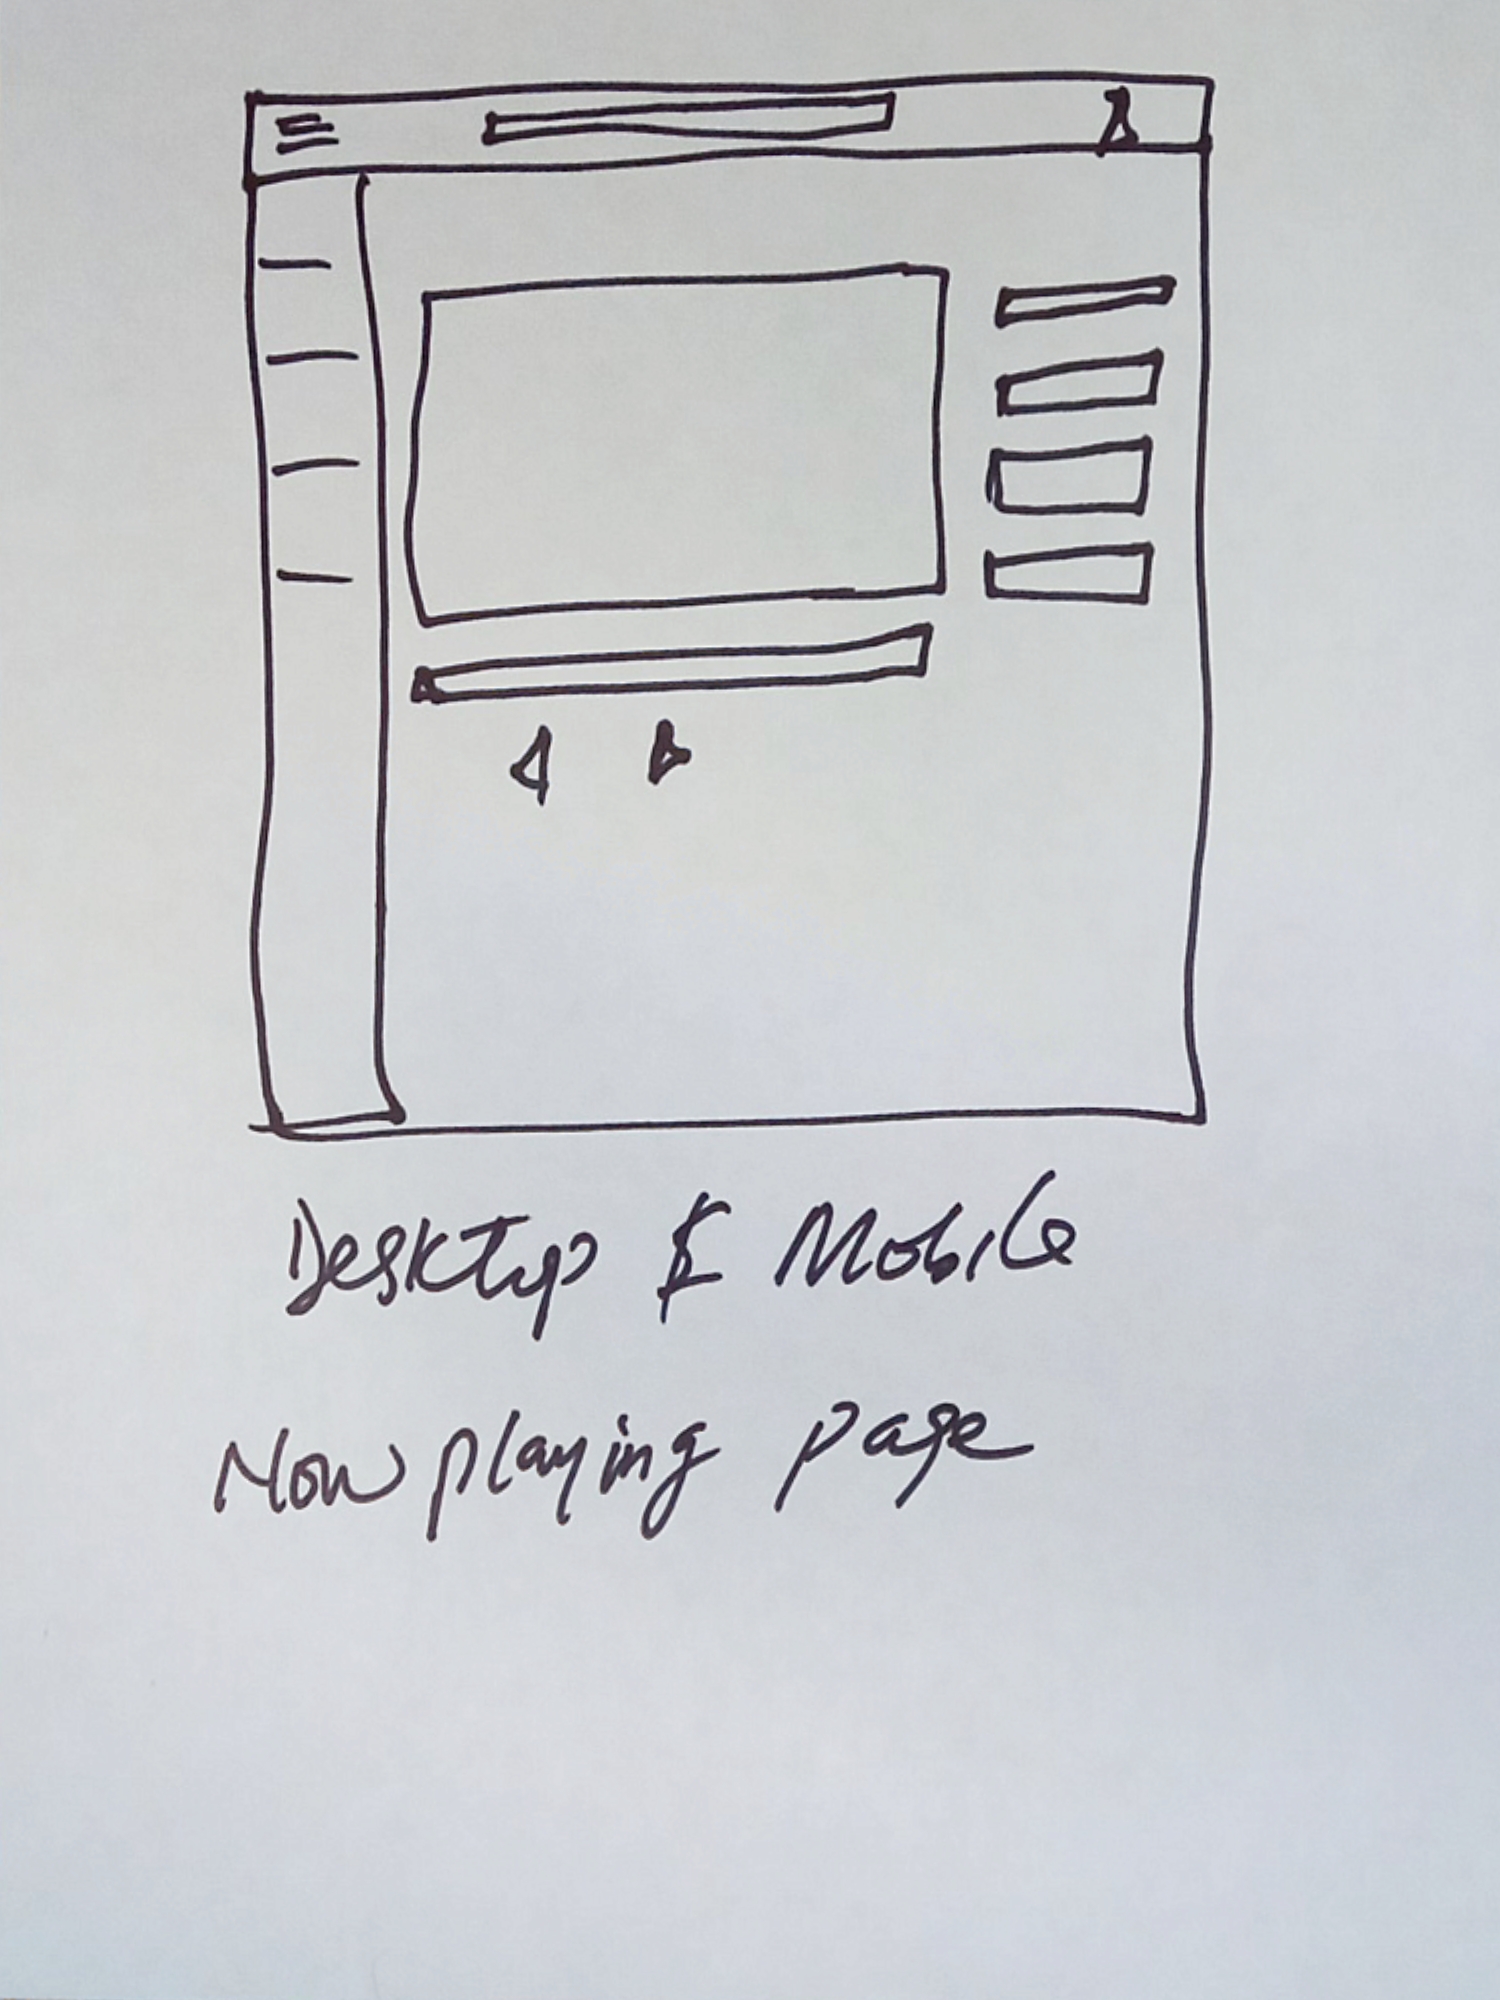 Desktop & Mobile
Now playing page